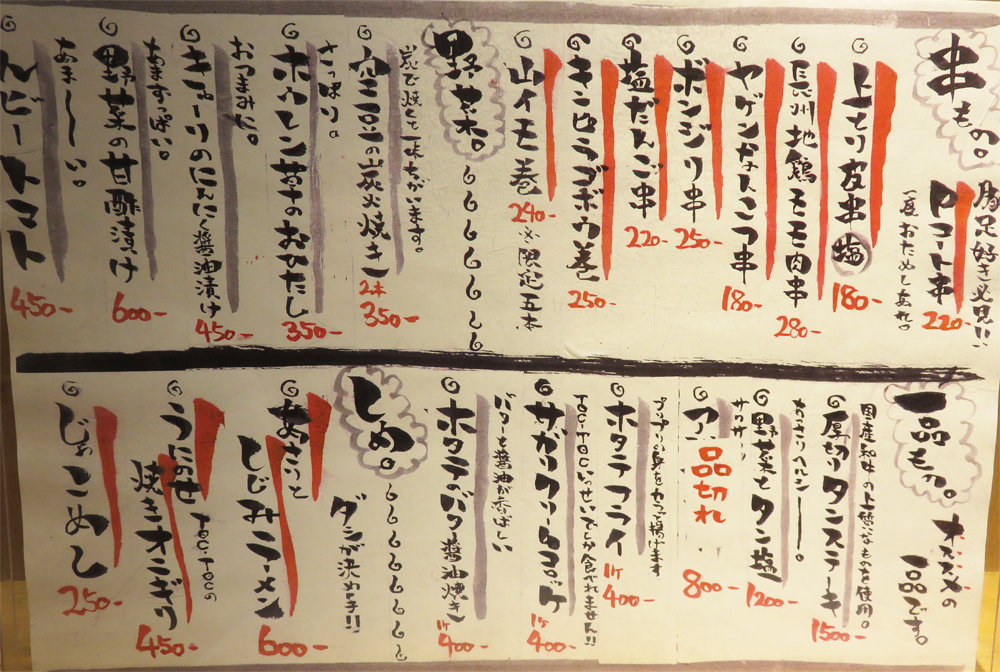 串もの。
豚足好き必見!!
一度おためしあれ。
トロコート串
220-
トリ皮串 塩
180-
長州地鶏モモ肉串
280-
ヤゲンなんこつ串
180-
ボンジリ串
250-
塩だんご串
220-
キンピラゴボウ巻
250-
山イモ巻
240-
※限定五本
野菜。
炭で焼くと一味ちがいます。
空豆の炭火焼き
2本
350-
さっぱり。
ホウレン草のおひたし
350-
おつまみに。
キューリのにんにく醤油漬け
450-
あまずっぱい。
野菜の甘酢漬け
600-
あま〜い。
ルビートマト
450-
一品もの。
オススメの
一品です。
国産和牛の上質なものを使用。
厚切りタンステーキ
1500-
野菜とタン塩
1200-
サクサク
品切れ
800-
プリプリの身をカラッと揚げます
ホタテフライ
1ケ
400-
いっせいでしか食べれません!!
サガリクリームコロッケ
1ケ
400-
バターと醤油が香ばしい
ホタテのバター醤油焼き
1ケ
400-
しめ。
ダシが決め手!!
あっさりと
しじみラーメン
600-
TOC・TOCの
うにのせ
焼きオニギリ
450-
じゃこめし
250-